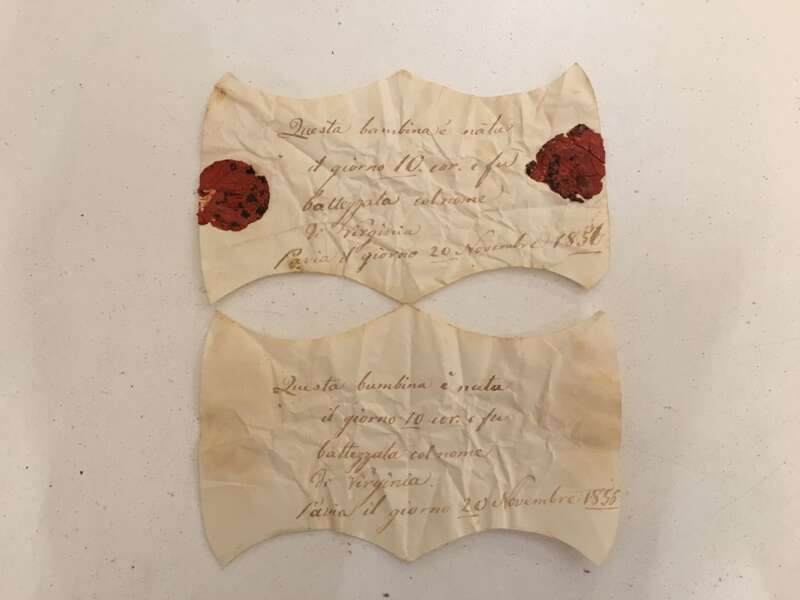 Questa bambina è nata
il giorno 10. cor. e fu
battezzata col nome
di Virginia
Pavia il giorno 20 Novembre 1856
Questa bambina è nata
il giorno 10 cor. e fu
battezzata col nome
di Virginia.
Pavia il giorno 20 Novembre 1856